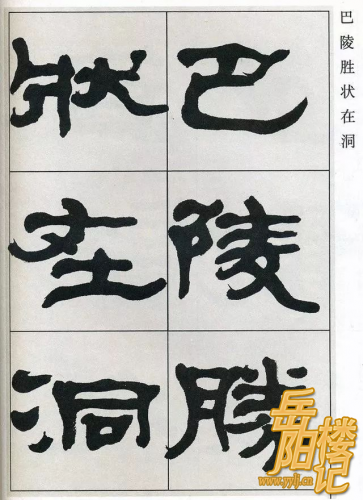 巴陵胜状在洞
巴陵勝
狀在洞
岳阳楼记
www.yylj.cn